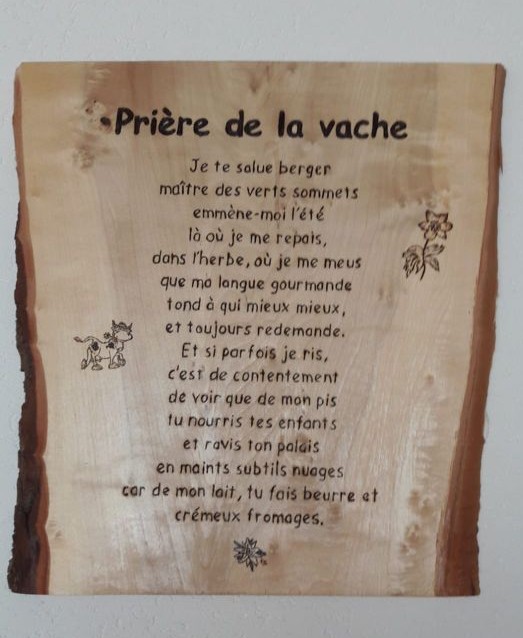 Prière de la vache
Je te salue berger
maître des verts sommets
emmène-moi l'été
là où je me repais,
dans l'herbe, où je me meus
que ma langue gourmande
tond à qui mieux mieux,
et toujours redemande.
Et si parfois je ris,
c'est de contentement
de voir que de mon pis
tu nourris tes enfants
et ravis ton palais
en maints subtils nuages
car de mon lait, tu fais beurre et
crémeux fromages.